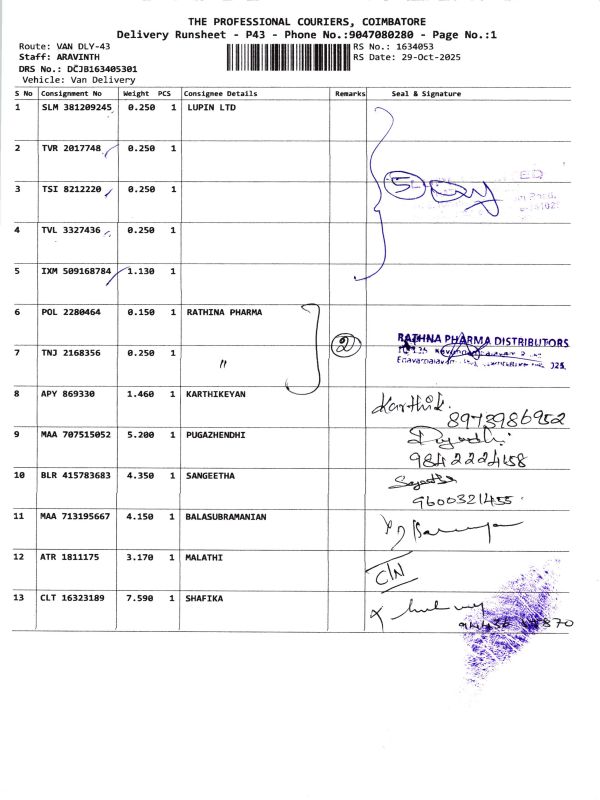 THE PROFESSIONAL COURIERS, COIMBATORE
Delivery Runsheet - P43 - Phone No.:9047080280 - Page No.:1
Route: VAN DLY-43 RS No.: 1634053
Staff: ARAVINTH RS Date: 29-Oct-2025
DRS No.: DCJB163405301
Vehicle: Van Delivery
S No Consignment No Weight PCS Consignee Details Remarks Seal & Signature
1 SLM 381209245 0.250 1 LUPIN LTD
2 TVR 2017748 0.250 1
3 TSI 8212220 0.250 1
5
4 TVL 3327436 0.250 1
5 IXM 509168784 1.130 1
6 POL 2280464 0.150 1 RATHINA PHARMA
2 RATHNA PHARMA DISTRIBUTORS
7 TNJ 2168356 0.250 1 "
8 APY 869330 1.460 1 KARTHIKEYAN Karthik.
8973986952
9 MAA 707515052 5.200 1 PUGAZHENDHI
9842224158
10 BLR 415783683 4.350 1 SANGEETHA
9600321455
11 MAA 713195667 4.150 1 BALASUBRAMANIAN
12 ATR 1811175 3.170 1 MALATHI C/N
13 CLT 16323189 7.590 1 SHAFIKA